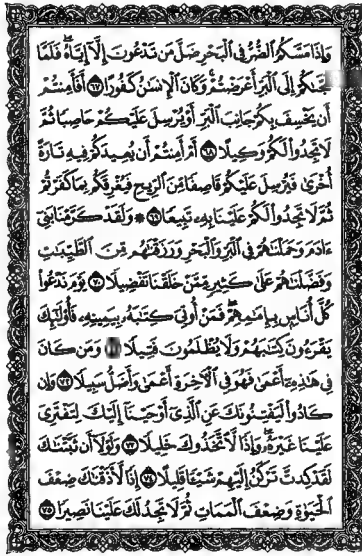 وَإِذَا مَسَّكُمُ الضُّرُّ فِي الْبَحْرِ ضَلَّ مَن تَدْعُونَ إِلَّا إِيَّاهُ فَلَمَّا
نَجَّىٰكُمْ إِلَى الْبَرِّ أَعْرَضْتُمْ وَكَانَ الْإِنسَٰنُ كَفُورًا ٦٧ أَفَأَمِنتُمْ
أَن يَخْسِفَ بِكُمْ جَانِبَ الْبَرِّ أَوْ يُرْسِلَ عَلَيْكُمْ حَاصِبًا ثُمَّ
لَا تَجِدُوا لَكُمْ وَكِيلًا ٦٨ أَمْ أَمِنتُمْ أَن يُعِيدَكُمْ فِيهِ تَارَةً
أُخْرَىٰ فَيُرْسِلَ عَلَيْكُمْ قَاصِفًا مِّنَ الرِّيحِ فَيُغْرِقَكُم بِمَا كَفَرْتُمْ
ثُمَّ لَا تَجِدُوا لَكُمْ عَلَيْنَا بِهِ تَبِيعًا ٦٩ ۞ وَلَقَدْ كَرَّمْنَا بَنِي
ءَادَمَ وَحَمَلْنَٰهُمْ فِي الْبَرِّ وَالْبَحْرِ وَرَزَقْنَٰهُم مِّنَ الطَّيِّبَٰتِ
وَفَضَّلْنَٰهُمْ عَلَىٰ كَثِيرٍ مِّمَّنْ خَلَقْنَا تَفْضِيلًا ٧٠ يَوْمَ نَدْعُوا
كُلَّ أُنَاسٍ بِإِمَٰمِهِمْ فَمَنْ أُوتِيَ كِتَٰبَهُ بِيَمِينِهِ فَأُولَٰئِكَ
يَقْرَءُونَ كِتَٰبَهُمْ وَلَا يُظْلَمُونَ فَتِيلًا ٧١ وَمَن كَانَ
فِي هَٰذِهِ أَعْمَىٰ فَهُوَ فِي الْأَخِرَةِ أَعْمَىٰ وَأَضَلُّ سَبِيلًا ٧٢ وَإِن
كَادُوا لَيَفْتِنُونَكَ عَنِ الَّذِي أَوْحَيْنَا إِلَيْكَ لِتَفْتَرِيَ
عَلَيْنَا غَيْرَهُ وَإِذًا لَّاتَّخَذُوكَ خَلِيلًا ٧٣ وَلَوْلَا أَن ثَبَّتْنَٰكَ
لَقَدْ كِدتَّ تَرْكَنُ إِلَيْهِمْ شَيْئًا قَلِيلًا ٧٤ إِذًا لَّأَذَقْنَٰكَ ضِعْفَ
الْحَيَوٰةِ وَضِعْفَ الْمَمَاتِ ثُمَّ لَا تَجِدُ لَكَ عَلَيْنَا نَصِيرًا ٧٥